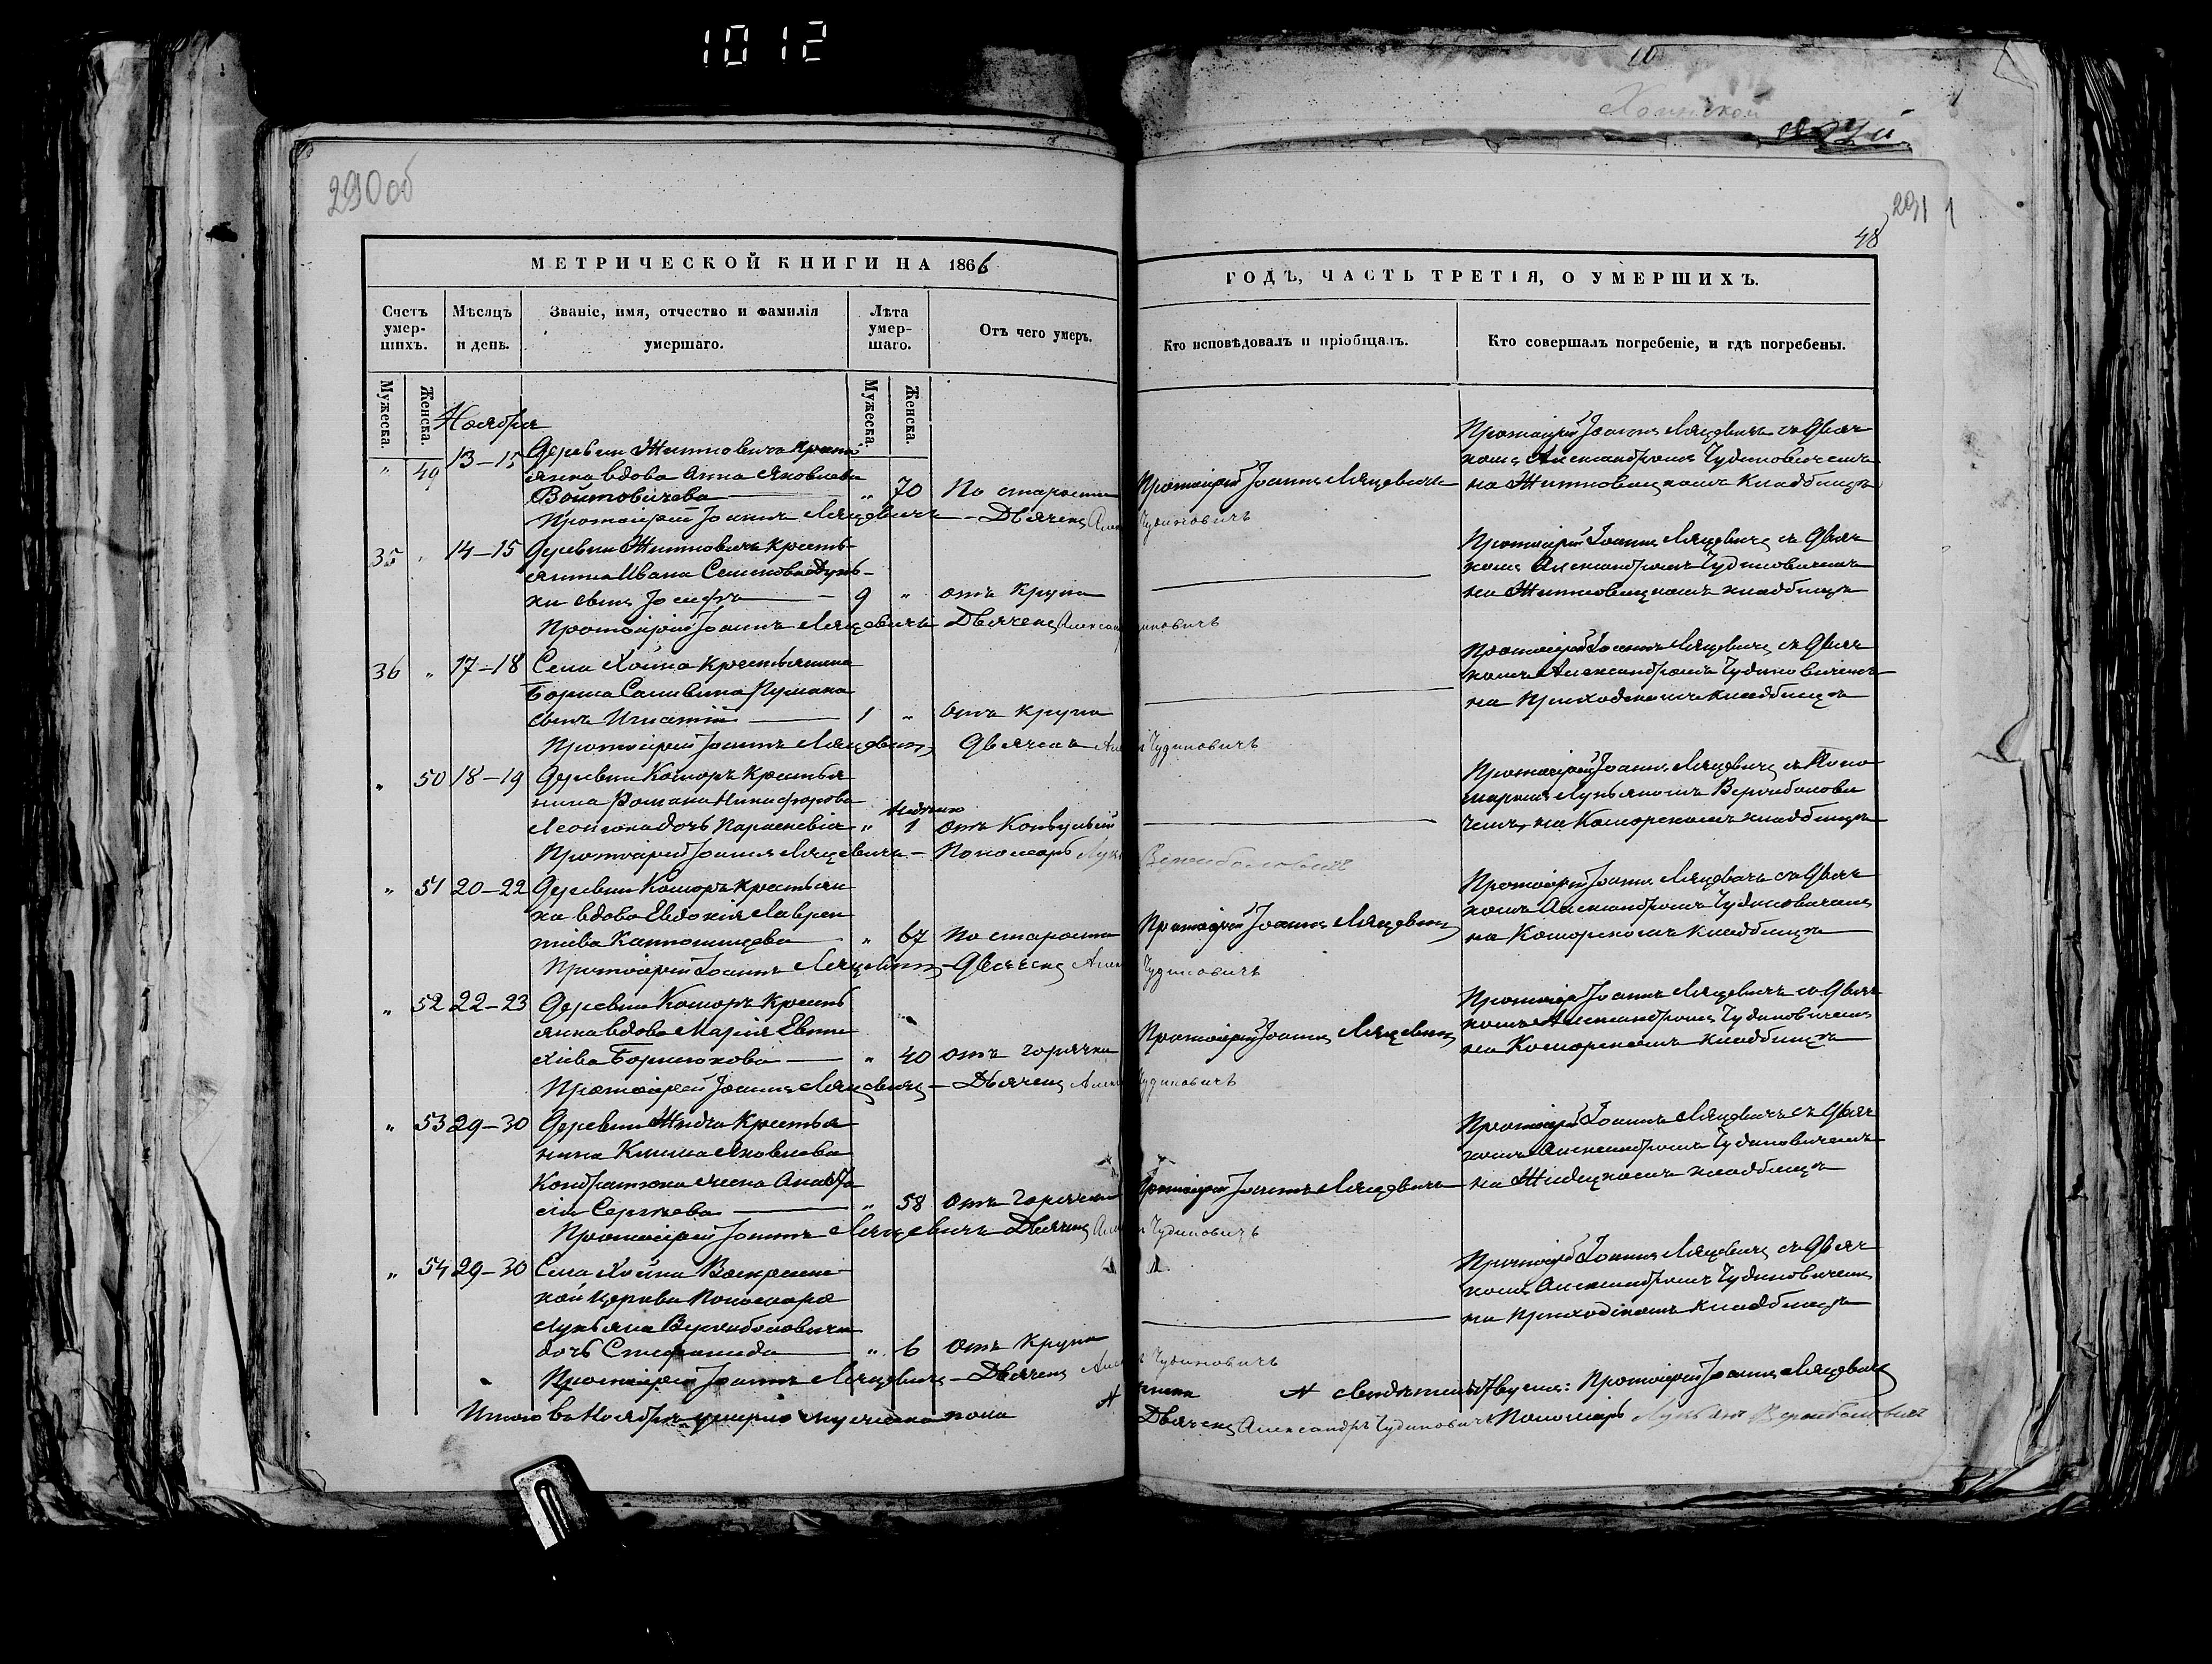 1012
10
Хойнской
290 об
291
48
МЕТРИЧЕСКОЙ КНИГИ НА 1866
ГОДЪ, ЧАСТЬ ТРЕТІЯ, О УМЕРШИХЪ.
Счетъ умер-шихъ.
Мѣсяцъ и день.
Званіе, имя, отчество и фамилія умершаго.
Лѣта умер-шаго.
Отъ чего умеръ.
Кто исповѣдовалъ и пріобщалъ.
Кто совершалъ погребеніе, и гдѣ погребены.
Мужеска.
Женска.
Мужеска.
Женска.
Ноября
" 49 13–15 Деревни Житновичъ кресть
янка вдова Анна Яковлева
Войтовичева — " 70 По старости
Протоіерей Іоаннъ Ляцевичъ
Протоіерей Іоаннъ Ляцевичъ съ Дьяч
комъ Александромъ Чудиновичемъ
на Житновицкомъ кладбищѣ
Протоіерей Іоаннъ Ляцевичъ – Дьячекъ Алек Чудиновичъ
35 " 14–15 Деревни Житновичъ кресть-
янина Ивана Семенова
ки сынъ Іосифъ — 9 " отъ крупа
Протоіерей Іоаннъ Ляцевичъ съ Дьяч
комъ Александромъ Чудиновичемъ
на Житновицкомъ кладбищѣ
Протоіерей Іоаннъ Ляцевичъ Дьячекъ Алексан диновичъ
36 " 17–18 Села Хойна крестьянина
Бориса Савина
сынъ Игнатій — 1 " отъ крупа
Протоіерей Іоаннъ Ляцевичъ съ Дьяч
комъ Александромъ Чудиновичемъ
на Приходскомъ кладбищѣ
Протоіерей Іоаннъ Ляцевичъ Дьячекъ Але Чудиновичъ
" 50 18–19 Деревни Коморъ крестья
нина Романа Никифорова
дочь Параскевія " недѣлю 1 отъ конвульсій
Протоіерей Іоаннъ Ляцевичъ съ Поно
маремъ Лукьяномъ Вержболови
чемъ, на Коморскомъ кладбищѣ
Протоіерей Іоаннъ Ляцевичъ – Пономарь Лукь Вержболовичъ
" 51 20–22 Деревни Коморъ крестьян
ка вдова Евдокія Лаврен
тіева — " 67 По старости
Протоіерей Іоаннъ Ляцевичъ
Протоіерей Іоаннъ Ляцевичъ съ Дьяч
комъ Александромъ Чудиновичемъ
на Коморскомъ кладбищѣ
Протоіерей Іоаннъ Ляцевичъ – Дьячекъ Алек Чудиновичъ
" 52 22–23 Деревни Коморъ кресть
янка вдова Марія Евти
хіева — " 40 отъ горячки
Протоіерей Іоаннъ Ляцевичъ
Протоіерей Іоаннъ Ляцевичъ съ Дьяч
комъ Александромъ Чудиновичемъ
на Коморскомъ кладбищѣ
Протоіерей Іоаннъ Ляцевичъ – Дьячекъ Алек Чудиновичъ
" 53 29–30 Деревни Жидча крестья
нина Климa Яковлева
Кондратюка жена Анаста
сія Сергѣева — " 58 отъ горячки
Протоіерей Іоаннъ Ляцевичъ
Протоіерей Іоаннъ Ляцевичъ съ Дьяч
комъ Александромъ Чудиновичемъ
на Жидецкомъ кладбищѣ
Протоіерей Іоаннъ Ляцевичъ Дьячекъ Але Чудиновичъ
" 54 29–30 Села Хойна Воскресен
ской церкви Пономаря
Лукьяна Вержболовича
дочь Стефанида — " 6 отъ крупа
Протоіерей Іоаннъ Ляцевичъ съ Дьяч
комъ Александромъ Чудиновичемъ
на Приходскомъ кладбищѣ
Протоіерей Іоаннъ Ляцевичъ – Дьячекъ Алек Чудиновичъ
Итого въ Ноябрѣ умерло мужеска пола
Свидѣтельствуемъ: Протоіерей Іоаннъ Ляцевичъ
Дьячекъ Александръ Чудиновичъ Пономарь Лукьянъ Вержболовичъ